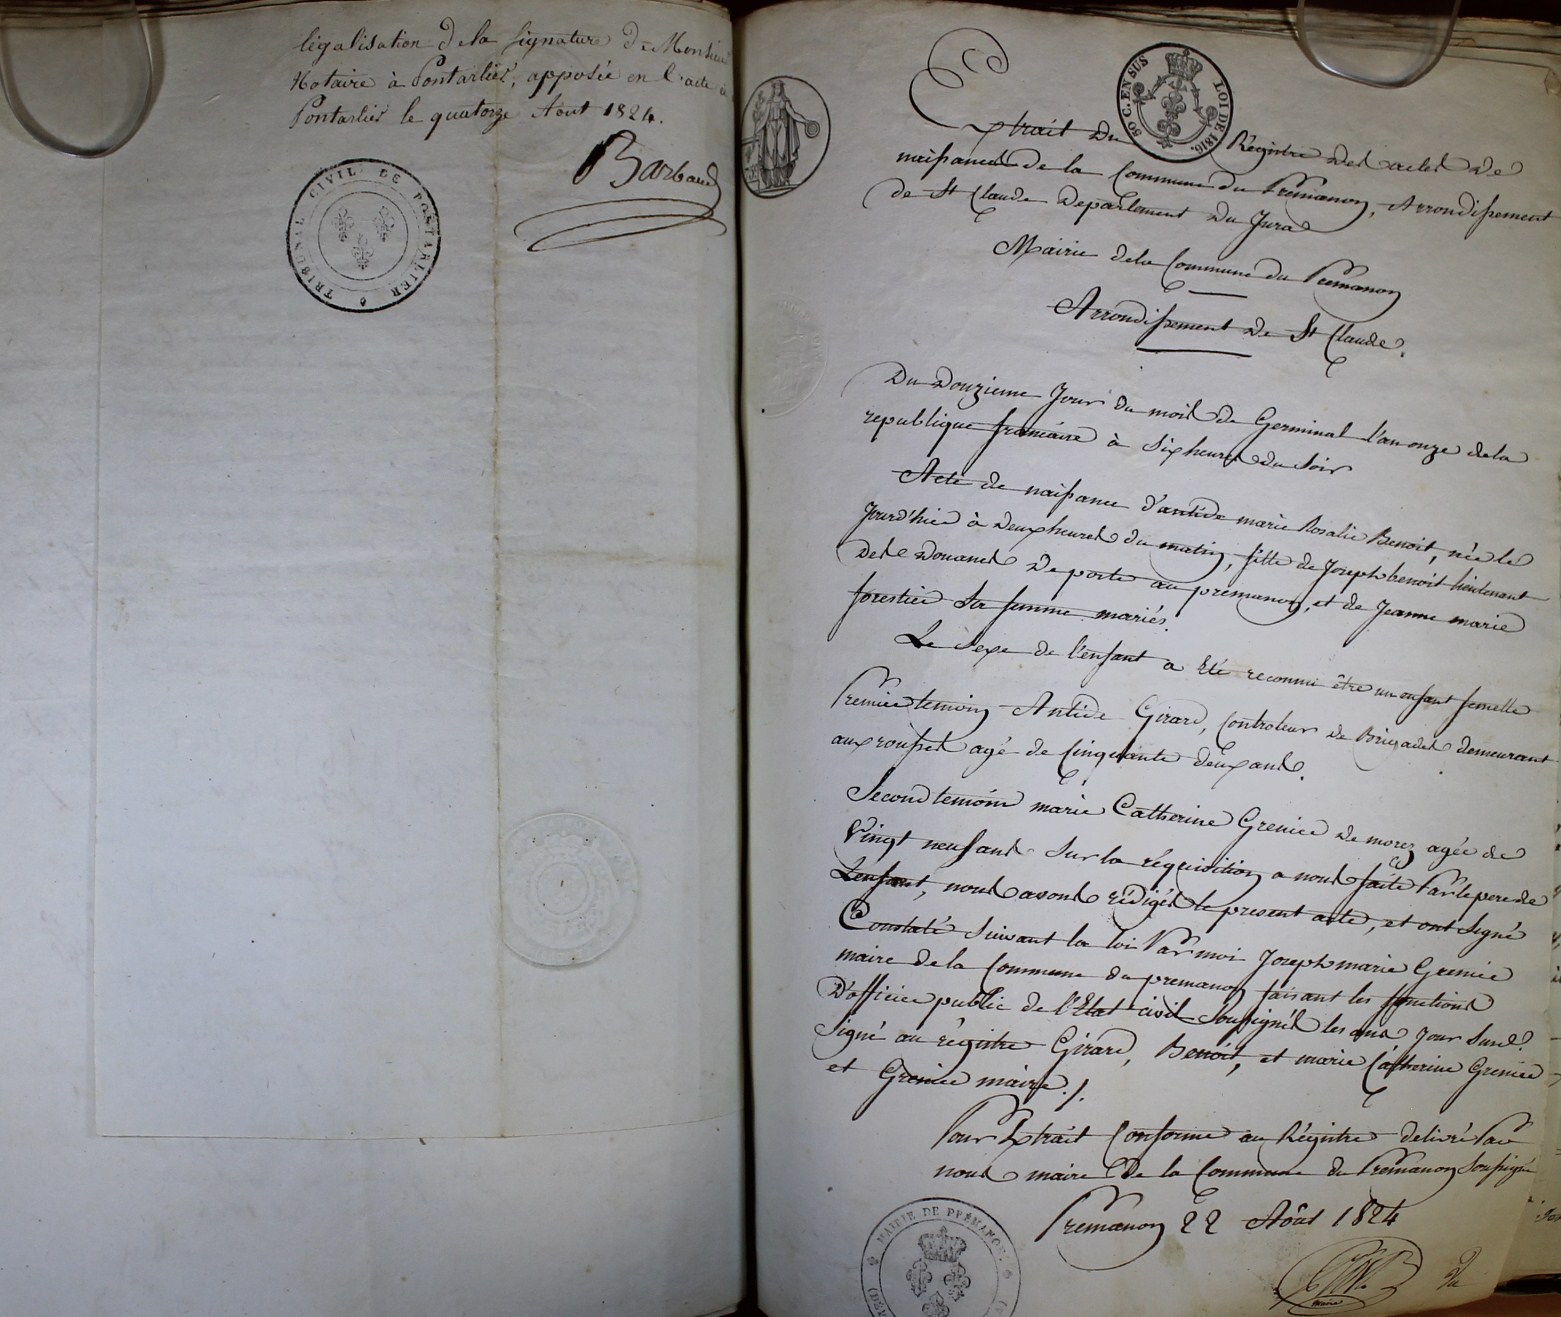 légalisation de la signature de Monsieur
Notaire à Pontarlier, apposée en l'acte
Pontarlier le quatorze Aout 1824.
Barbaud
TRIBUNAL CIVIL DE PONTARLIER
50 C. EN SUS LOI DE 1816.
Extrait Du Régistre des actes de
naissances de la Commune du Prémanon, Arrondissement
de St Claude Departement du Jura
Mairie dela Commune du Prémanon
Arrondissement de St Claude.
Du Douzieme Jour du mois de Germinal l'an onze dela
republique francaise à Six heures du Soir
Acte de naissance d'antide marie Rosalie Benoit, née le
Jourd'hui à Deux heures du matin, fille de Joseph benoit lieutenant
des Douanes De poste au premanon, et de Jeanne marie
forestier Sa femme mariés.
Le Sexe de l'enfant a Eté reconnu être un enfant femelle
Premier temoin Antide Girard, Controleur de Brigades demeurant
aux rousses agé de Cinquante deux ans.
Second temoin marie Catherine Grenier De morez agée de
Vingt neuf ans Sur la réquisition a nous faite Par le pere de
L'enfant, nous avons rédigés le present acte, et ont Signé
Constaté Suivant la loi Par moi Joseph marie Grenier
maire de la Commune du premanon faisant les fonctions
D'officier public de l'Etat civil Soussignés les ans Jour Susd.
Signé au régistre Girard, Benoit, et marie Catherine Grenier
et Grenier maire ./.
Pour Extrait Conforme au Régistre delivré Par
nous maire De la Commune du Prémanon Soussigné
Prémanon 22 Août 1824
MAIRIE DE PRÉMANON